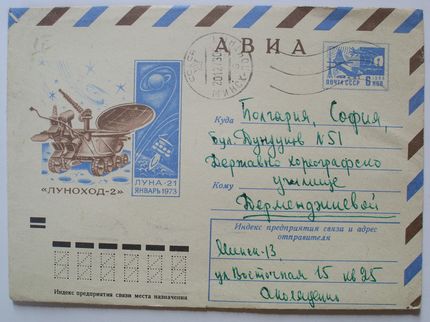 АВИА
МИНСК
ПОЧТА СССР
6
КОП
Куда
Болгария, София,
бул. Дундуков N 51
Державно хореографско
училище
Кому
Дерменджиевой
«ЛУНОХОД-2»
ЛУНА-21
ЯНВАРЬ 1973
Индекс предприятия связи и адрес
отправителя
Минск-13
ул Восточная 15 кв 25
Индекс предприятия связи места назначения